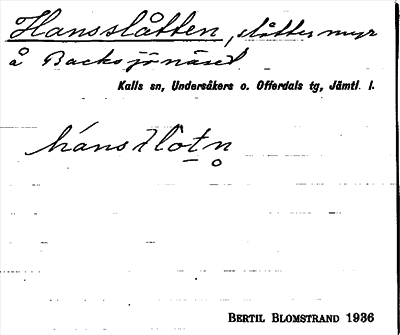 Hansslåtten, slåttesmyr
å Backsjönäset
Kalls sn, Undersåkers o. Offerdals tg, Jämtl. l.
BERTIL BLOMSTRAND 1936